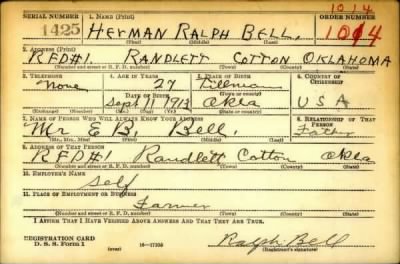 1014
SERIAL NUMBER 1. NAME (Print) ORDER NUMBER
1425 HERMAN RALPH BELL. 1014
(First) (Middle) (Last)
2. ADDRESS (Print)
RFD#1. RANDLETT COTTON OKLAHOMA
(Number and street or R. F. D. number) (Town) (County) (State)
3. TELEPHONE 4. AGE IN YEARS 5. PLACE OF BIRTH 6. COUNTRY OF CITIZENSHIP
None 27 Tillman
DATE OF BIRTH
Sept 11 1913 Okla USA
7. NAME OF PERSON WHO WILL ALWAYS KNOW YOUR ADDRESS 8. RELATIONSHIP OF THAT PERSON
Mr. E B. Bell. Father
(Mr., Mrs., Miss) (First) (Middle) (Last)
9. ADDRESS OF THAT PERSON
RFD#1 Randlett Cotton Okla
(Number and street or R. F. D. number) (Town) (County) (State)
10. EMPLOYER'S NAME
Self
11. PLACE OF EMPLOYMENT OR BUSINESS
Farmer
(Number and street or R. F. D. number) (Town) (County) (State)
I AFFIRM THAT I HAVE VERIFIED ABOVE ANSWERS AND THAT THEY ARE TRUE.
REGISTRATION CARD
D. S. S. Form 1 (over) Ralph Bell